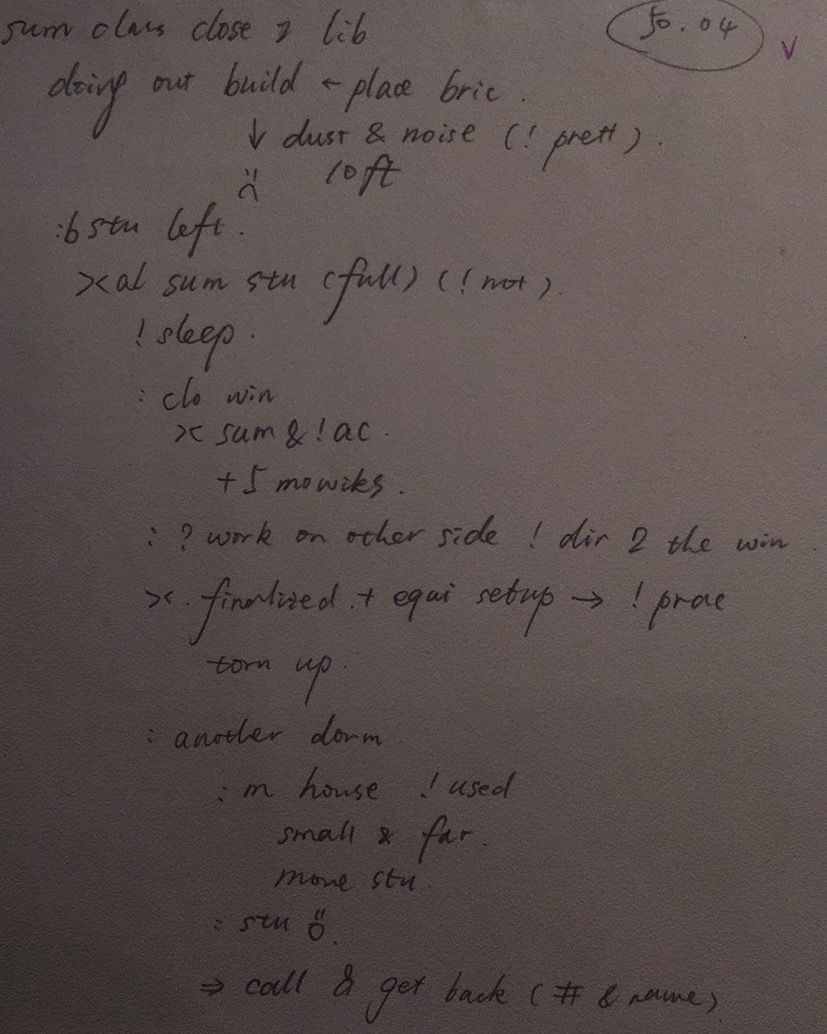 sum class close 2 lib 50.04
doing out build ← place bric.
↓ dust & noise (! prett).
10ft
:b stu left.
>< al sum stu (full) (! not).
! sleep.
: clo win
>< sum & ! ac.
+5 mo wiks.
: ? work on other side ! dir 2 the win.
><. finalized. + equi setup → ! prac
torn up.
: another dorm
: m house ! used
small & far.
move stu.
: stu
⇒ call & get back (# & name)